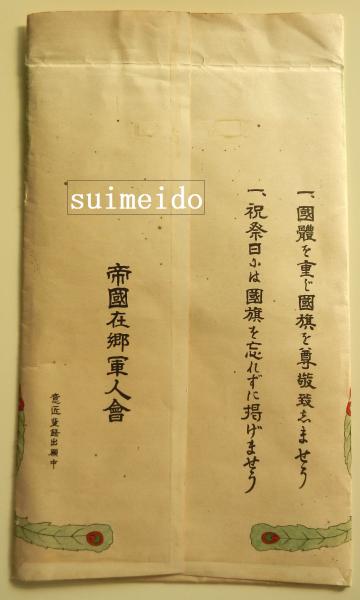 一、國體を重じ國旗を尊敬致しませう
一、祝祭日には國旗を忘れずに掲げませう
帝國在郷軍人會
意匠登録出願中
suimeido